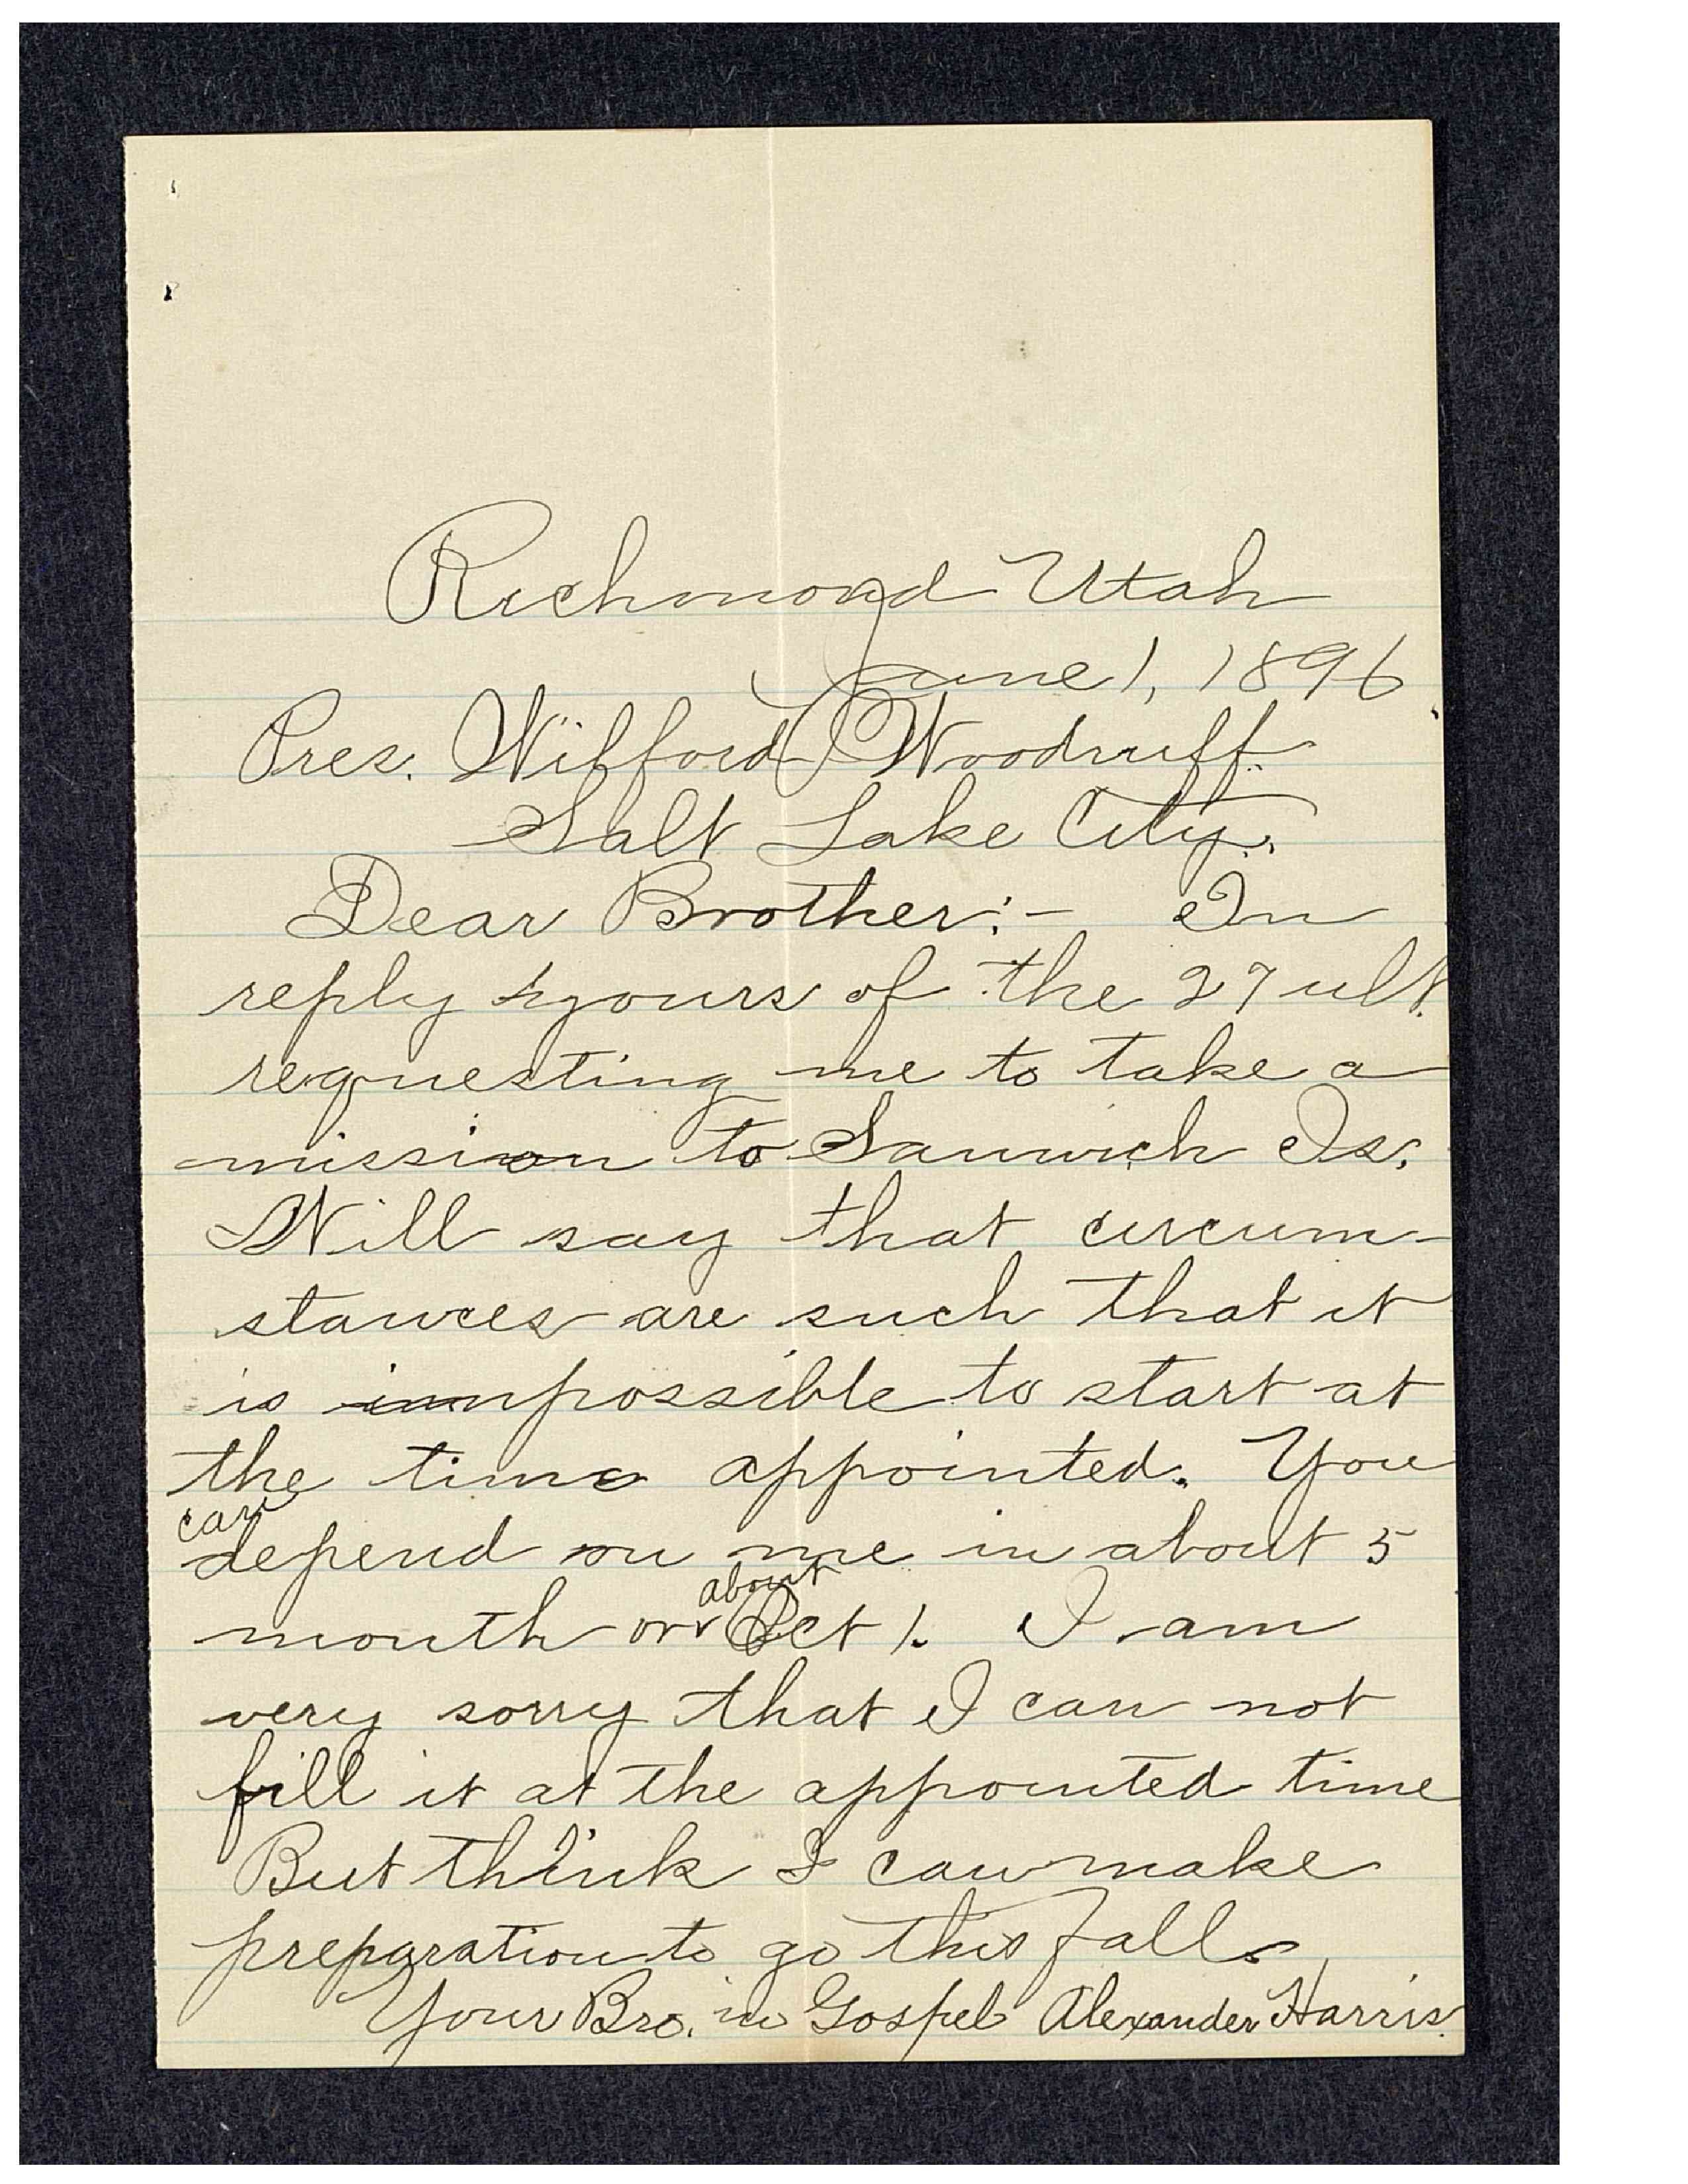 Richmond Utah
June 1, 1896
Pres. Wilford Woodruff.
Salt Lake City.
Dear Brother:- In
reply yours of the 27 ult.
requesting me to take a
mission to Sanwich Is.
Will say that circum-
stances are such that it
is impossible to start at
the time appointed. You
can
depend on me in about 5
about
month or Oct 1. I am
very sorry that I can not
fill it at the appointed time
But think I can make
preparation to go this fall.
Your Bro. in Gospel Alexander Harris.